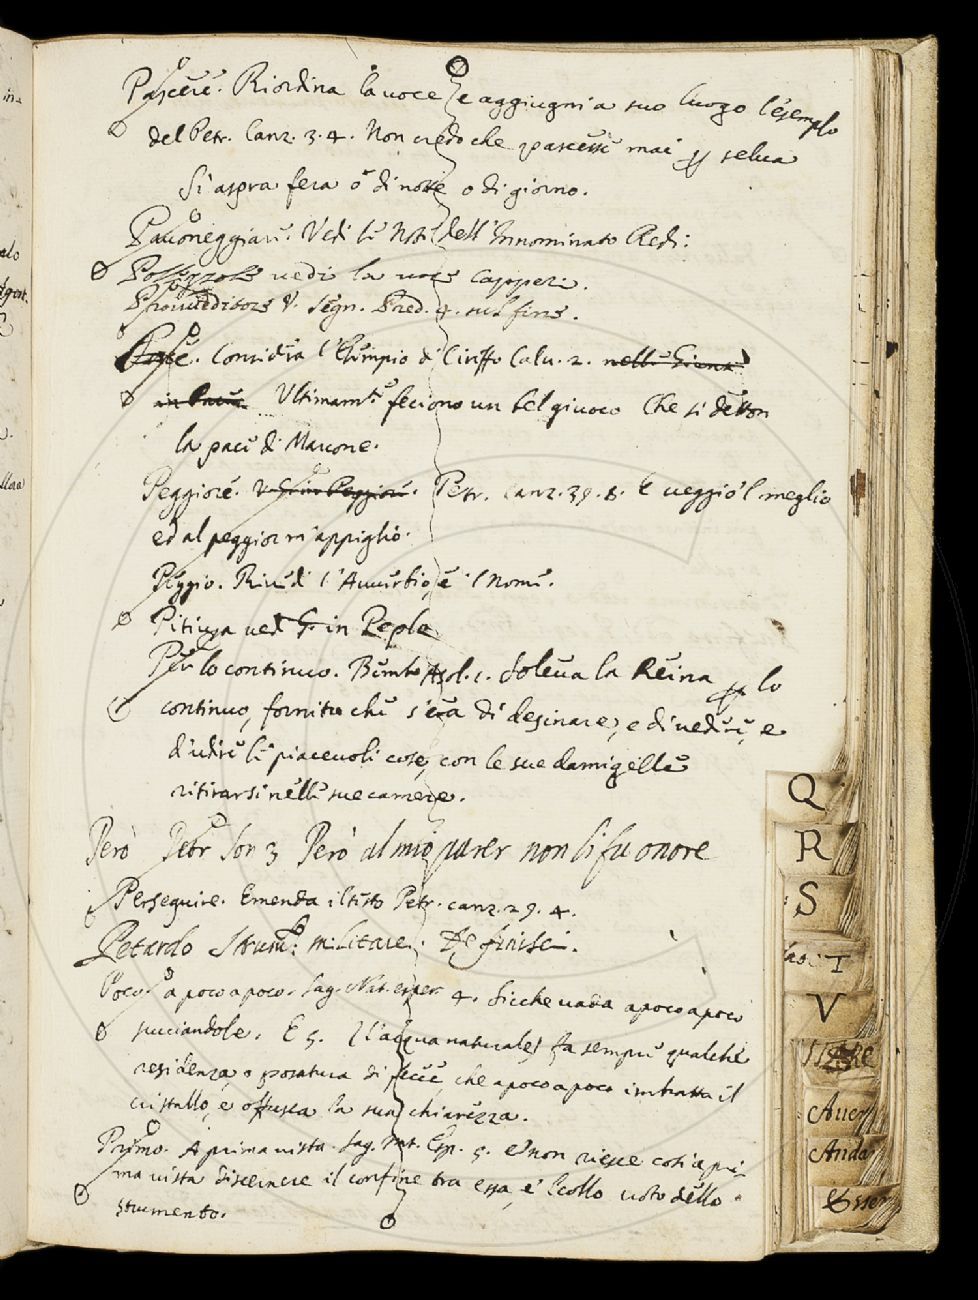 Pascere. Riordina la voce, e aggiugni a suo luogo l'esemplo
del Petr. Canz. 3. 4. Non credo che pascesse mai p selva
Si aspra fera ò di notte o di giorno.
Pavoneggiare. Vedi le Note dell'Innominato Redi:
vedi la voce Capperi.
Provveditore V. Segn. Pred. 4. sul fine.
Pace. Considera l'Esempio di Ciriffo Calv. 2. nelle Giunte
in Pace. Ultimam.te feciono un bel giuoco Che si detton
la pace di Marcone.
Peggiore. Petr. Canz. 39. 8. E veggio'l meglio
ed al peggior m'appiglio.
Peggio. Rivedi l'Avverbio, e 'l Nome.
Pitiuza ved G. in Peplo
Per lo continuo. Bembo Asol. 1. Soleva la Reina p lo
continuo, fornito che s'era di desinare, e di vedere, e
d'udire le piacevoli cose, con le sue damigelle
ritirarsi nelle sue camere.
Però Petr Son 3 Però al mio parer non li fu onore
Perseguire. Emenda il testo Petr. canz. 29. 4.
Petardo Strum.o militare. Definisci.
Poco. a poco a poco. Sag. Nat. esper 4. Sicche vada a poco a poco
succiandole. E 5. (l'acqua naturale) fa sempre qualche
residenza, o posatura di fecce, che a poco a poco imbratta il
cristallo, e offusca la sua chiarezza.
Primo. A prima vista. Sag. nat. Esp. 5. e non riesce così a pri
ma vista discernere il confine tra essa, e 'l collo voto dello
strumento.
Q
R
S
T
V
Aver
Anda
Esser